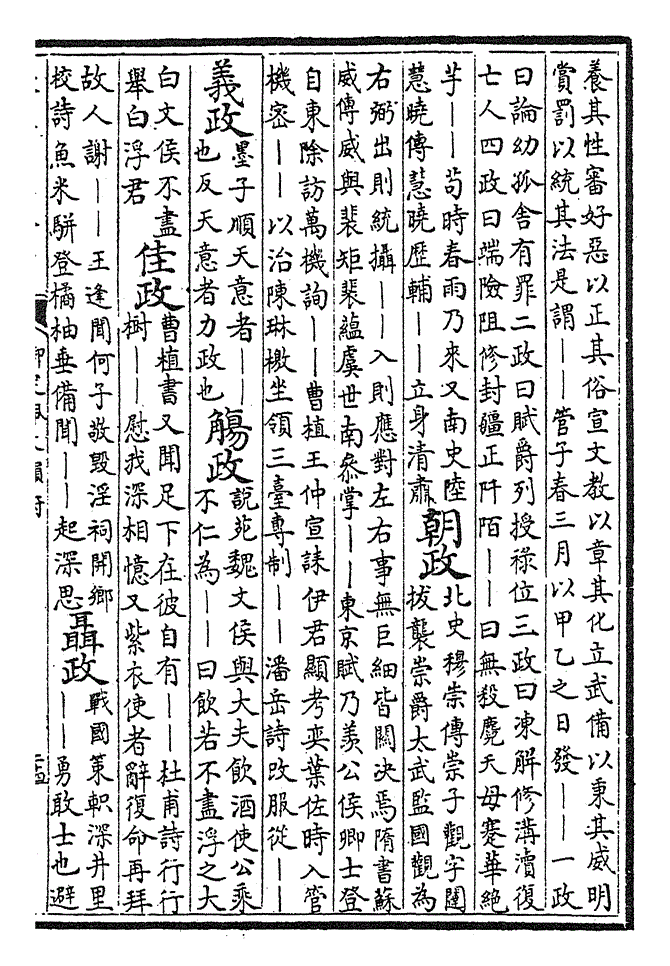 養其性審好惡以正其俗宣文教以章其化立武備以秉其威明
賞罰以統其法是謂——管子春三月以甲乙之日發——一政
曰論幼孤舍有罪二政曰賦爵列授祿位三政曰凍解修溝瀆復
亡人四政曰端險阻修封疆正阡陌——曰無殺麑夭毋蹇華絕
芋——苟時春雨乃來又南史陸
慧曉傳慧曉歷輔——立身清肅
朝政
北史穆崇傳崇子觀字闥
拔襲崇爵太武監國觀為
右弼出則統攝——入則應對左右事無巨細皆關決焉隋書蘇
威傳威與裴矩裴蘊虞世南參掌——東京賦乃羡公侯卿士登
自東除訪萬機詢——曹植王仲宣誄伊君顯考奕葉佐時入管
機密——以治陳琳檄坐領三臺專制——潘岳詩改服從——
義政
墨子順天意者——
也反天意者力政也
觴政
說苑魏文侯與大夫飲酒使公乘
不仁為——曰飲若不盡浮之大
白文侯不盡
舉白浮君
佳政
曹植書又聞足下在彼自有——杜甫詩行行
樹——慰我深相憶又紫衣使者辭復命再拜
故人謝——王逢聞何子敬毀淫祠開鄉
校詩魚米駢登橘柚垂備聞——起深思
聶政
戰國策軹深井里
——勇敢士也避